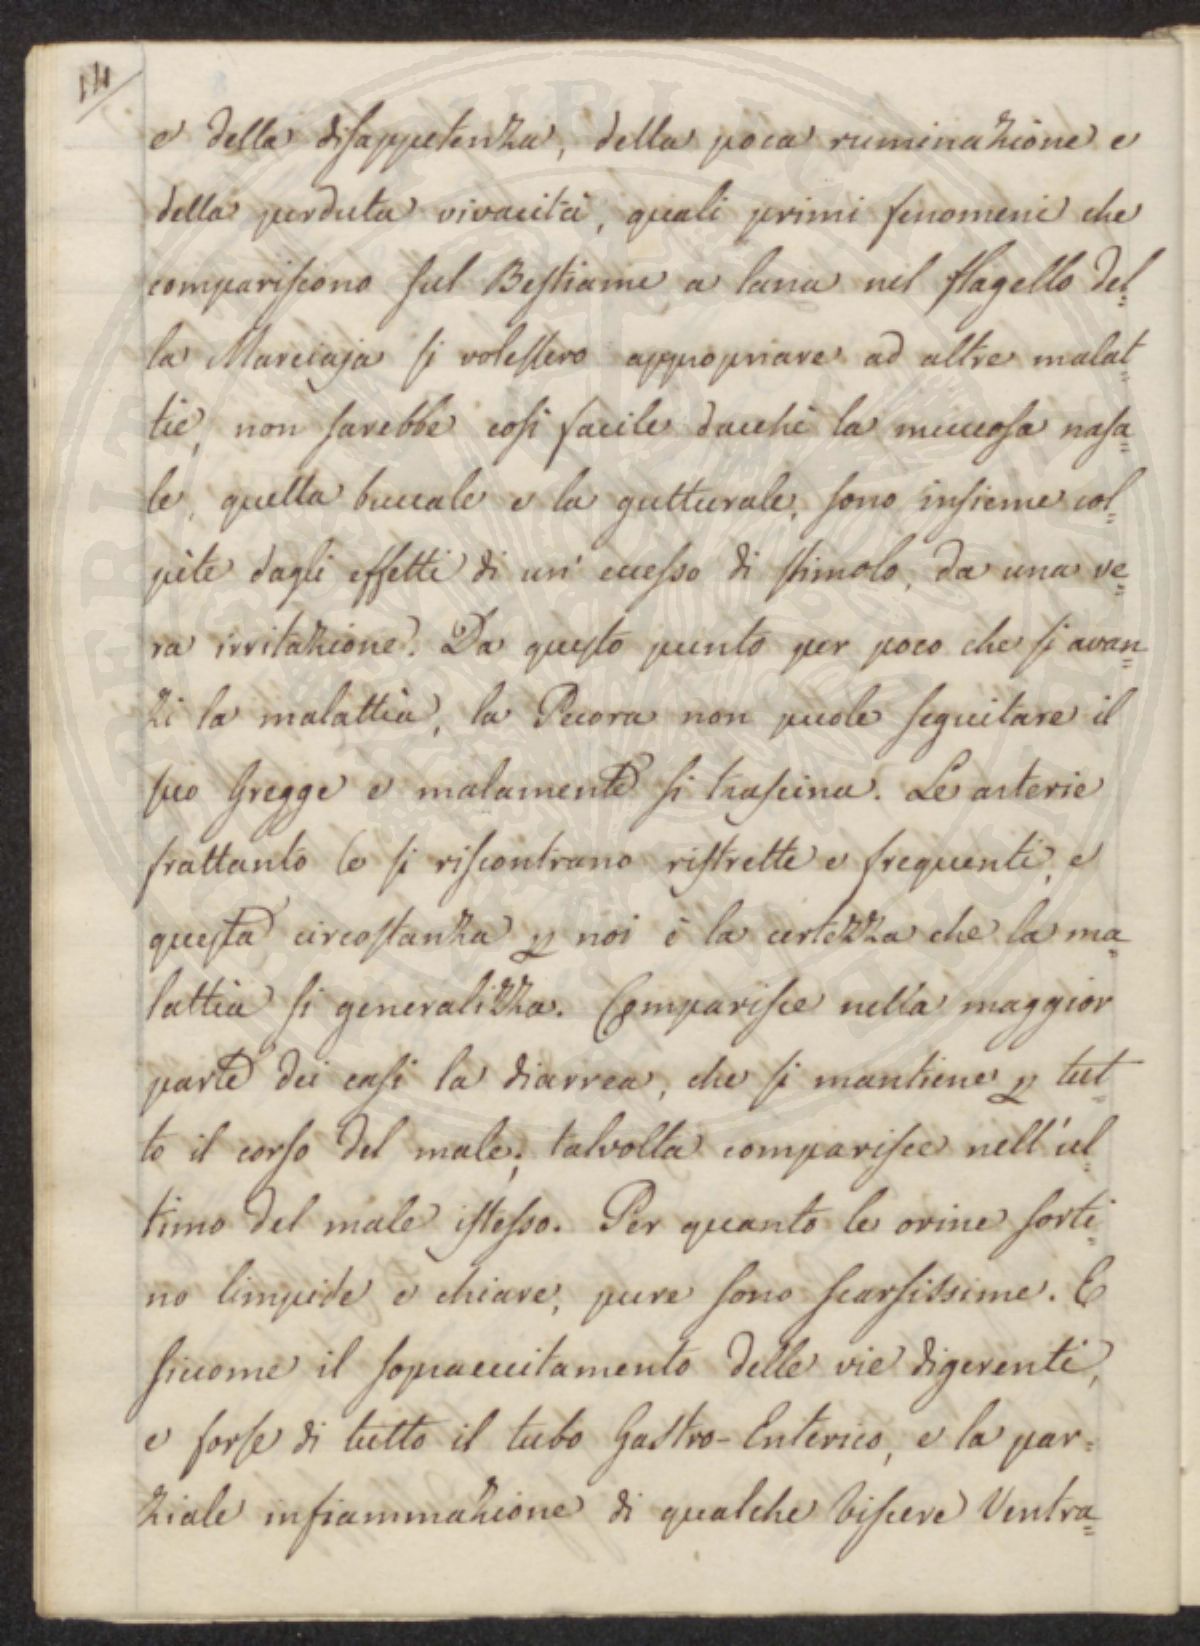 14
e della disappetenza, della poca ruminazione e
della perduta vivacità, quali primi fenomeni che
compariscono sul Bestiame a lana nel flagello del=
la Marciaja si volessero appropriare ad altre malat=
tie, non sarebbe così facile dacchè la muccosa nasa=
le, quella buccale e la gutturale, sono insieme col=
pite dagli effetti di un' eccesso di stimolo, da una ve=
ra irritazione. Da questo punto per poco che si avan=
zi la malattia, la Pecora non puole seguitare il
suo Gregge e malamente si trascina. Le arterie
frattanto le si riscontrano ristrette e frequenti, e
questa circostanza p noi è la certezza che la ma=
lattia si generalizza. Comparisce nella maggior
parte dei casi la diarrea, che si mantiene p tut=
to il corso del male; talvolta comparisce nell'ul=
timo del male istesso. Per quanto le orine sorti=
no limpide e chiare, pure sono scarsissime. E
siccome il sopraeccitamento delle vie digerenti,
e forse di tutto il tubo Gastro-Enterico, e la par=
ziale infiammazione di qualche Viscere Ventra=